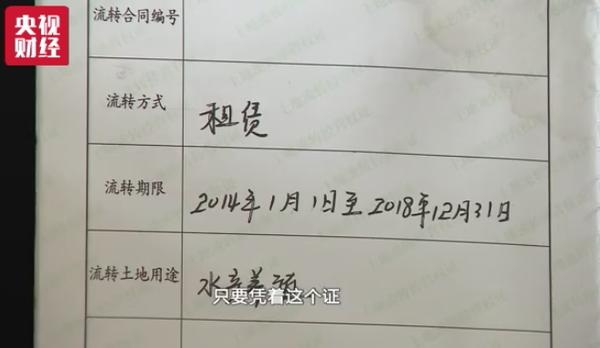 央视
财经
流转合同编号
流转方式 租赁
流转期限 2014年1月1日至2018年12月31日
流转土地用途 水产养殖
只要凭着这个证